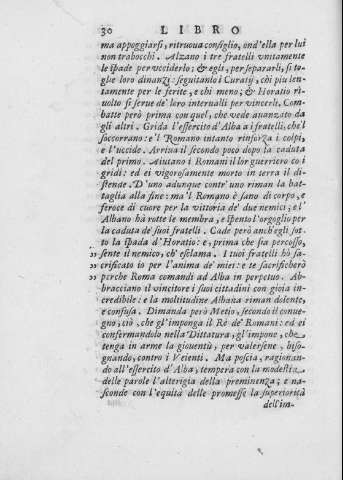 30 LIBRO
ma appoggiarsi, ritruoua consiglio, ond'ella per lui
non trabocchi. Alzano i tre fratelli vnitamente
le spade per vcciderlo; & egli, per separarli, si to-
glie loro dinanzi: seguitanlo i Curatij, chi più len-
tamente per le ferite, e chi meno; & Horatio ri-
uolto si serue de' loro interualli per vincerli. Com-
batte però prima con quel, che vede auanzato da
gli altri. Grida l'essercito d'Alba a i fratelli, che'l
soccorrano: e'l Romano intanto rinforza i colpi,
e l'vccide. Arriua il secondo poco dopo la caduta
del primo. Aiutano i Romani il lor guerriero co i
gridi: ed ei vigorosamente morto in terra il di-
stende. D'vno adunque contr'vno riman la bat-
taglia alla fine: ma'l Romano è sano di corpo, e
feroce di cuore per la vittoria de' due nemici; e l'
Albano hà rotte le membra, e spento l'orgoglio per
la caduta de' suoi fratelli. Cade però anch'egli sot
to la spada d'Horatio: e, prima che sia percosso,
„ sente il nemico, ch'esclama. I tuoi fratelli hò sa-
„ crificato io per l'anima de' miei: e te sacrificherò
„ perche Roma comandi ad Alba in perpetuo. Ab-
bracciano il vincitore i suoi cittadini con gioia in-
credibile: e la moltitudine Albana riman dolente,
e confusa. Dimanda però Metio, secondo il conue-
gno, ciò, che gl'imponga il Rè de' Romani: ed ei
confermandolo nella Dittatura, gl'impone, che
tenga in arme la giouentù, per valersene, biso-
gnando, contro i Veienti. Ma poscia, ragionan-
do all'essercito d'Alba, tempera con la modestia
delle parole l'alterigia della preminenza; e na-
sconde con l'equità delle promesse la superiorità
dell'im-